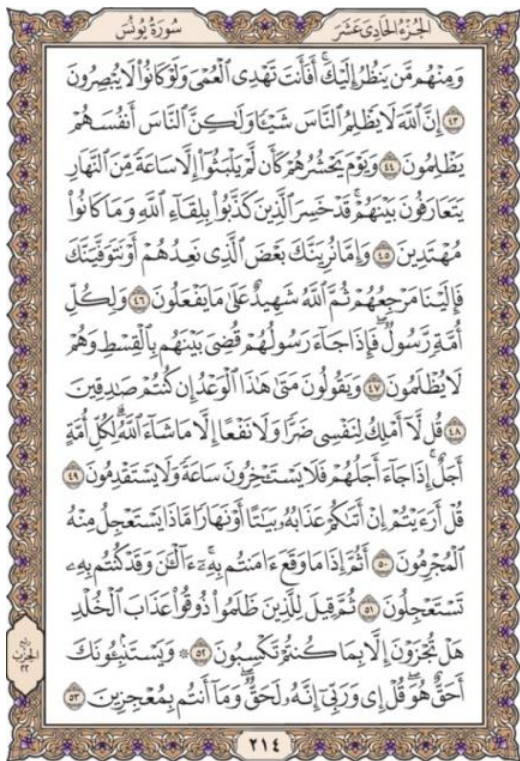 الجزء الحادي عشر
سورة يونس
وَمِنْهُم مَّن يَنظُرُ إِلَيْكَ ۚ أَفَأَنتَ تَهْدِى ٱلْعُمْىَ وَلَوْ كَانُوا۟ لَا يُبْصِرُونَ
٤٣ إِنَّ ٱللَّهَ لَا يَظْلِمُ ٱلنَّاسَ شَيْـًٔا وَلَـٰكِنَّ ٱلنَّاسَ أَنفُسَهُمْ
يَظْلِمُونَ ٤٤ وَيَوْمَ يَحْشُرُهُمْ كَأَن لَّمْ يَلْبَثُوٓا۟ إِلَّا سَاعَةً مِّنَ ٱلنَّهَارِ
يَتَعَارَفُونَ بَيْنَهُمْ ۚ قَدْ خَسِرَ ٱلَّذِينَ كَذَّبُوا۟ بِلِقَآءِ ٱللَّهِ وَمَا كَانُوا۟
مُهْتَدِينَ ٤٥ وَإِمَّا نُرِيَنَّكَ بَعْضَ ٱلَّذِى نَعِدُهُمْ أَوْ نَتَوَفَّيَنَّكَ
فَإِلَيْنَا مَرْجِعُهُمْ ثُمَّ ٱللَّهُ شَهِيدٌ عَلَىٰ مَا يَفْعَلُونَ ٤٦ وَلِكُلِّ
أُمَّةٍ رَّسُولٌ ۖ فَإِذَا جَآءَ رَسُولُهُمْ قُضِىَ بَيْنَهُم بِٱلْقِسْطِ وَهُمْ
لَا يُظْلَمُونَ ٤٧ وَيَقُولُونَ مَتَىٰ هَـٰذَا ٱلْوَعْدُ إِن كُنتُمْ صَـٰدِقِينَ
٤٨ قُل لَّآ أَمْلِكُ لِنَفْسِى ضَرًّا وَلَا نَفْعًا إِلَّا مَا شَآءَ ٱللَّهُ ۗ لِكُلِّ أُمَّةٍ
أَجَلٌ ۚ إِذَا جَآءَ أَجَلُهُمْ فَلَا يَسْتَـْٔخِرُونَ سَاعَةً ۖ وَلَا يَسْتَقْدِمُونَ ٤٩
قُلْ أَرَءَيْتُمْ إِنْ أَتَىٰكُمْ عَذَابُهُۥ بَيَـٰتًا أَوْ نَهَارًا مَّاذَا يَسْتَعْجِلُ مِنْهُ
ٱلْمُجْرِمُونَ ٥٠ أَثُمَّ إِذَا مَا وَقَعَ ءَامَنتُم بِهِۦٓ ۚ ءَآلْـَٔـٰنَ وَقَدْ كُنتُم بِهِۦ
تَسْتَعْجِلُونَ ٥١ ثُمَّ قِيلَ لِلَّذِينَ ظَلَمُوا۟ ذُوقُوا۟ عَذَابَ ٱلْخُلْدِ
هَلْ تُجْزَوْنَ إِلَّا بِمَا كُنتُمْ تَكْسِبُونَ ٥٢ ۞ وَيَسْتَنۢبِـُٔونَكَ
أَحَقٌّ هُوَ ۖ قُلْ إِى وَرَبِّىٓ إِنَّهُۥ لَحَقٌّ ۖ وَمَآ أَنتُم بِمُعْجِزِينَ ٥٣
ربع
الحزب
٢٢
٢١٤